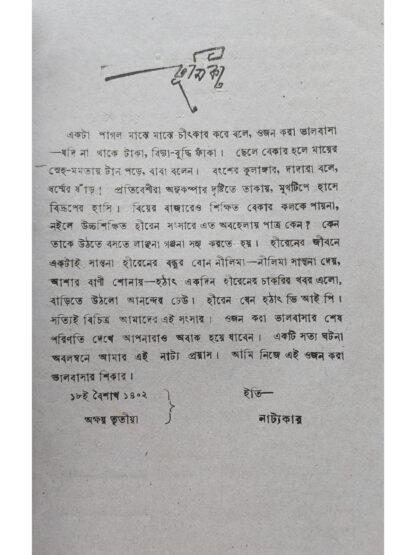 ভূমিকা
একটা পাগল মাঝে মাঝে চীৎকার করে বলে, ওজন করা ভালবাসা
—যদি না থাকে টাকা, বিদ্যা-বুদ্ধি ফাঁকা। ছেলে বেকার হলে মায়ের
স্নেহ-মমতায় টান পড়ে, বাবা বলেন। বংশের কুলাঙ্গার, দাদারা বলে,
ধর্ম্মের ষাঁড়! প্রতিবেশীরা অনুকম্পার দৃষ্টিতে তাকায়, মুখটিপে হাসে
বিদ্রূপের হাসি। বিয়ের বাজারেও শিক্ষিত বেকার কলকে পায়না,
নইলে উচ্চশিক্ষিত হীরেন সংসারে এত অবহেলার পাত্র কেন? কেন
তাকে উঠতে বসতে লাঞ্ছনা গঞ্জনা সহ্য করতে হয়। হীরেনের জীবনে
একটাই সান্ত্বনা হীরেনের বন্ধুর বোন নীলিমা—নীলিমা সান্ত্বনা দেয়,
আশার বাণী শোনায়—হঠাৎ একদিন হীরেনের চাকরির খবর এলো,
বাড়িতে উঠলো আনন্দের ঢেউ। হীরেন যেন হঠাৎ ভি আই পি।
সত্যিই বিচিত্র আমাদের এই সংসার। ওজন করা ভালবাসার শেষ
পরিণতি দেখে আপনারাও অবাক হয়ে যাবেন। একটি সত্য ঘটনা
অবলম্বনে আমার এই নাট্য প্রয়াস। আমি নিজে এই ওজন করা
ভালবাসার শিকার।
১৮ই বৈশাখ ১৪০২
অক্ষয় তৃতীয়া
ইতি—
নাট্যকার